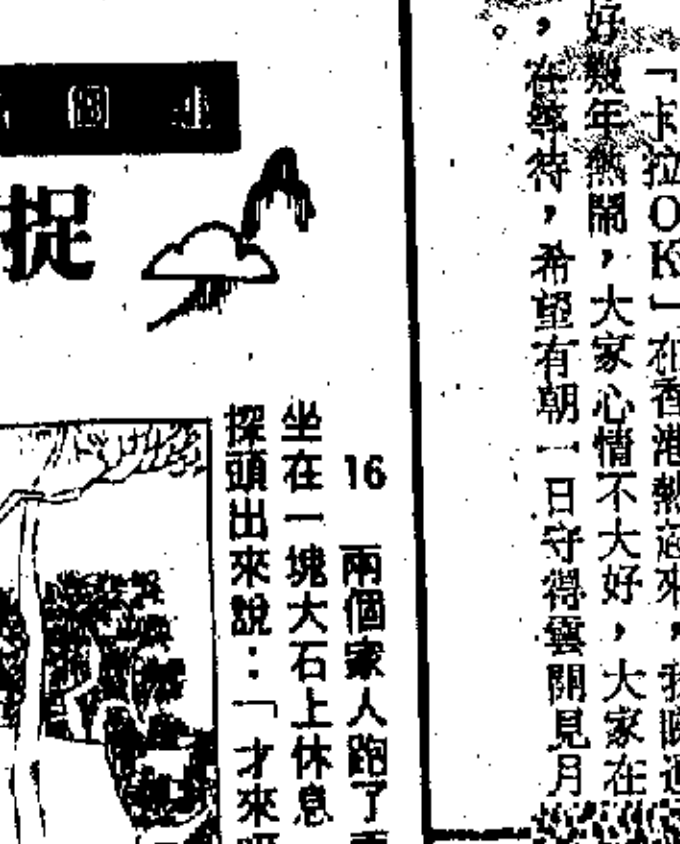 「卡拉OK」在香港熱起來，我
好幾年熱鬧，大家心情不大好，大家在
，在等待，希望有朝一日守得雲開見月
捉
16 兩個家人跑了
坐在一塊大石上休息
探頭出來說：「才來